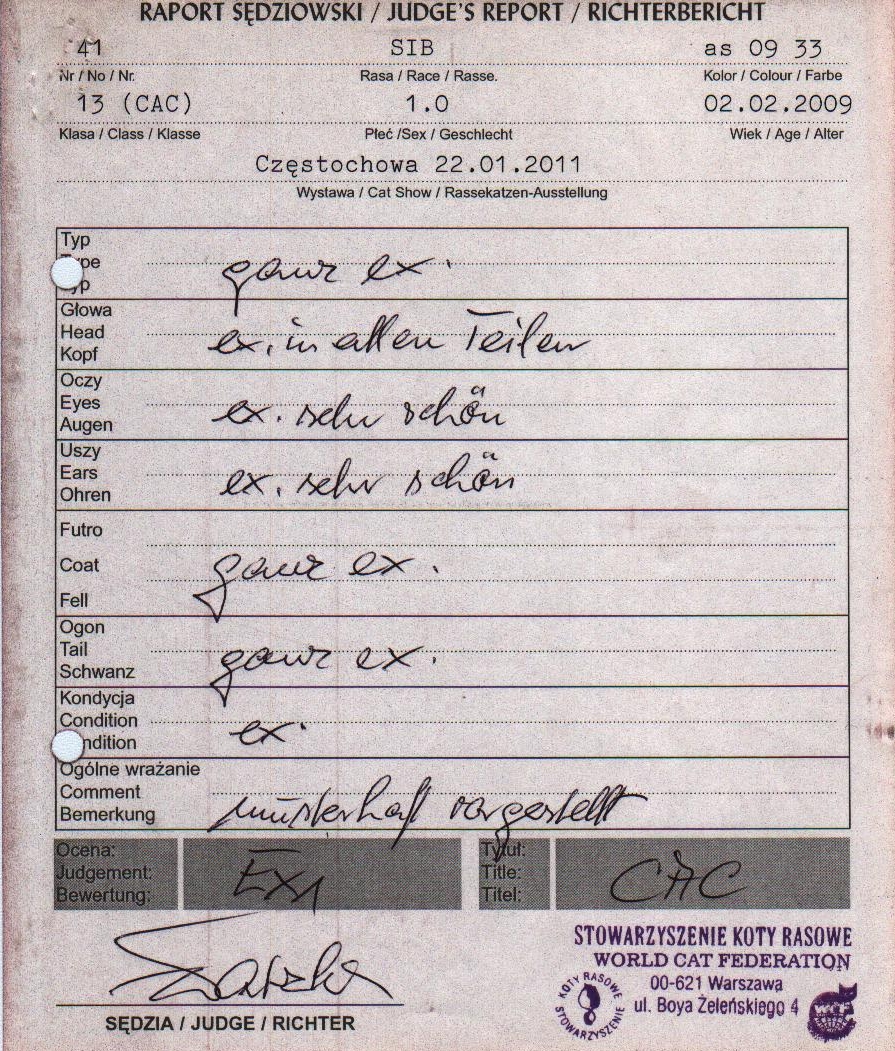 RAPORT SĘDZIOWSKI / JUDGE'S REPORT / RICHTERBERICHT
41 SIB as 09 33
Nr / No / Nr. Rasa / Race / Rasse. Kolor / Colour / Farbe
13 (CAC) 1.0 02.02.2009
Klasa / Class / Klasse Płeć /Sex / Geschlecht Wiek / Age / Alter
Częstochowa 22.01.2011
Wystawa / Cat Show / Rassekatzen-Ausstellung
Typ
ype ganz ex.
yp
Głowa
Head ex. in allen Teilen
Kopf
Oczy
Eyes ex. sehr schön
Augen
Uszy
Ears ex. sehr schön
Ohren
Futro
Coat ganz ex.
Fell
Ogon
Tail ganz ex.
Schwanz
Kondycja
Condition ex.
ndition
Ogólne wrażanie
Comment
Bemerkung musterhaft vorgestellt
Ocena: Tytuł:
Judgement: Ex1 Title: CAC
Bewertung: Titel:
STOWARZYSZENIE KOTY RASOWE
WORLD CAT FEDERATION
00-621 Warszawa
ul. Boya Żeleńskiego 4
KOTY RASOWE
STOWARZYSZENIE
SĘDZIA / JUDGE / RICHTER